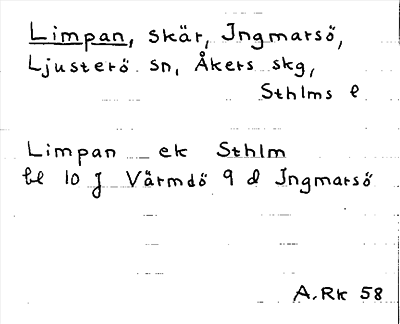 Limpan, skär, Ingmarsö,
Ljusterö sn, Åkers skg,
Sthlms l
Limpan ek Sthlm
bl 10 J Värmdö 9 d Ingmarsö
A.Rk 58